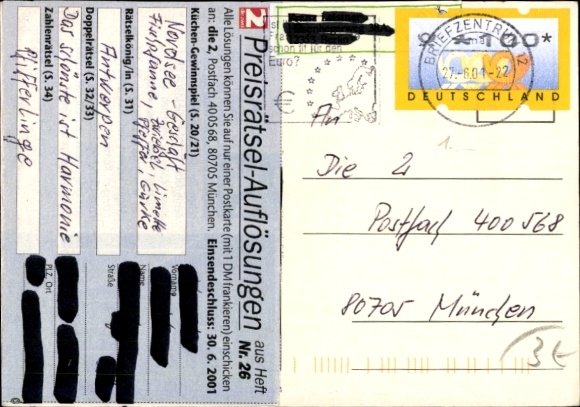 2
Preisrätsel-Auflösungen aus Heft Nr. 26
Alle Lösungen können Sie auf nur einer Postkarte (mit 1 DM frankieren) einschicken
an: die 2, Postfach 400568, 80705 München. Einsendeschluss: 30. 6. 2001
Küchen-Gewinnspiel (S. 20/21)
Nordsee - Geduft
Zwiebel, Limette
Fischpfanne, Pfeffer, Gurke
Rätselkönig/in (S. 31)
Antwerpen
Doppelrätsel (S. 32/33)
Das schönste ist Harmonie
Zahlenrätsel (S. 34)
Pfifferlinge
Vorname
Name
Straße
PLZ, Ort
schon fit für den
Euro?
BRIEFZENTRUM 12
27.-6.01-22
*100*
DEUTSCHLAND
An
Die 2
Postfach 400568
80705 München
3€